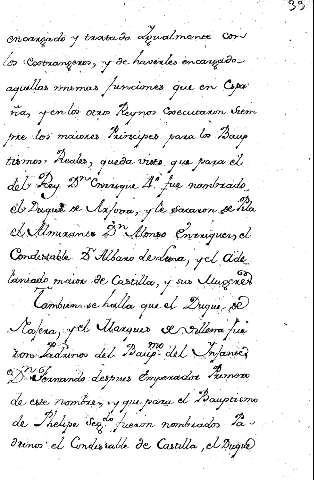 39
encargado y tratado igualmente con
los extrangeros, y de haverles encargado
aquellas mismas funciones que en Espa
ña, y en los otros Reynos executaron siem
pre los maiores Principes para los Bau
tismos Reales, queda visto que para el
del Rey Dn. Enrique 4o. fue nombrado
el Duque de y le sacaron de Pila
el Almirante Dn. Alonso Enriquez, el
Condestable Dn. Albaro de Luna, y el Ade
lantado maior de Castilla, y sus Mugeres
Tambien se halla que el Duque de
Naxera, y el Marques de Villena fue
ron Padrinos del Baupmo. del Infante
Dn. Fernando despues Emperador Primero
de este nombre, y que para el Bauptismo
de Phelipe Segdo. fueron nombrados Pa
drinos el Condestable de Castilla, el Duque